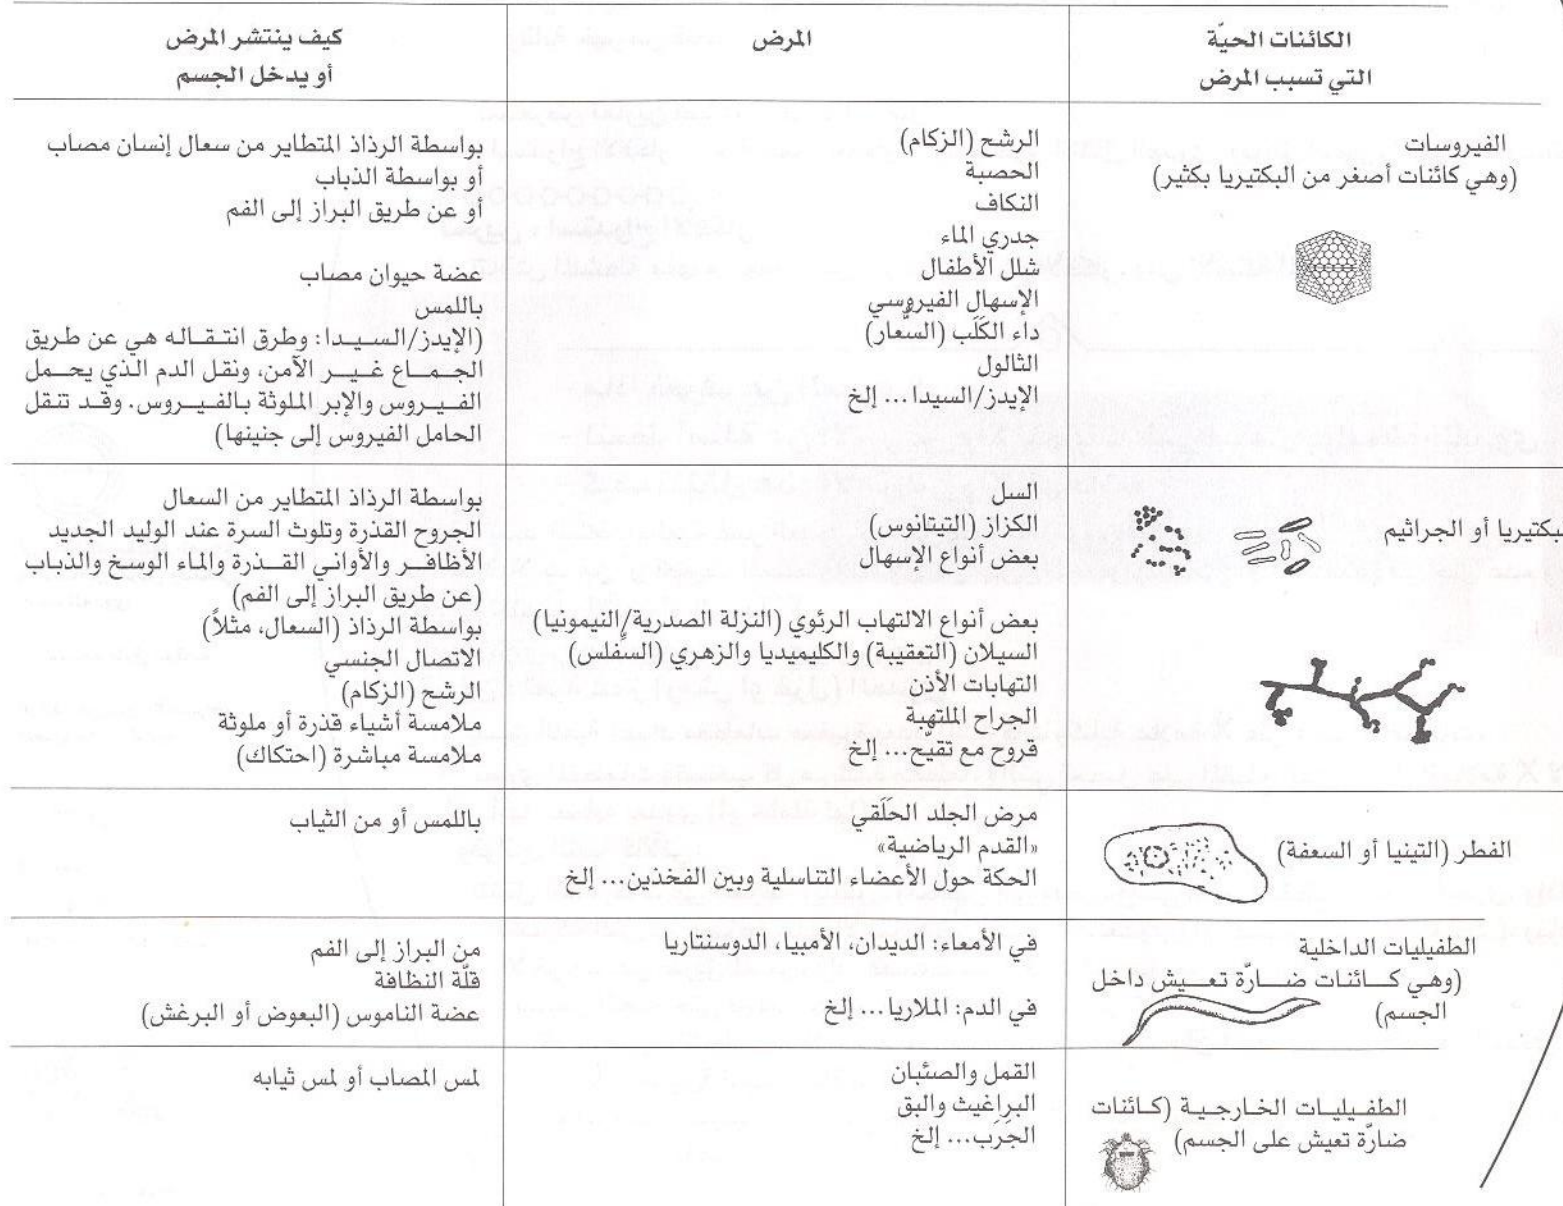 الكائنات الحيّة
التي تسبب المرض
المرض
كيف ينتشر المرض
أو يدخل الجسم
الفيروسات
(وهي كائنات أصغر من البكتيريا بكثير)
الرشح (الزكام)
الحصبة
النكاف
جدري الماء
شلل الأطفال
الإسهال الفيروسي
داء الكَلَب (السُّعار)
الثالول
الإيدز/السيدا... إلخ
بواسطة الرذاذ المتطاير من سعال إنسان مصاب
أو بواسطة الذباب
أو عن طريق البراز إلى الفم
عضة حيوان مصاب
باللمس
(الإيدز/السيدا: وطرق انتقاله هي عن طريق
الجماع غير الآمن، ونقل الدم الذي يحمل
الفيروس والإبر الملوثة بالفيروس. وقد تنقل
الحامل الفيروس إلى جنينها)
بكتيريا أو الجراثيم
السل
الكزاز (التيتانوس)
بعض أنواع الإسهال
بعض أنواع الالتهاب الرئوي (النزلة الصدرية/النيمونيا)
السيلان (التعقيبة) والكليميديا والزهري (السفّلس)
التهابات الأذن
الجراح الملتهبة
قروح مع تقيّح... إلخ
بواسطة الرذاذ المتطاير من السعال
الجروح القذرة وتلوث السرة عند الوليد الجديد
الأظافر والأواني القذرة والماء الوسخ والذباب
(عن طريق البراز إلى الفم)
بواسطة الرذاذ (السعال، مثلاً)
الاتصال الجنسي
الرشح (الزكام)
ملامسة أشياء قذرة أو ملوثة
ملامسة مباشرة (احتكاك)
الفطر (التينيا أو السعفة)
مرض الجلد الحَلَقي
«القدم الرياضية»
الحكة حول الأعضاء التناسلية وبين الفخذين... إلخ
باللمس أو من الثياب
الطفيليات الداخلية
(وهي كائنات ضارّة تعيش داخل
الجسم)
في الأمعاء: الديدان، الأمبيا، الدوسنتاريا
في الدم: الملاريا... إلخ
من البراز إلى الفم
قلّة النظافة
عضة الناموس (البعوض أو البرغش)
الطفيليات الخارجية (كائنات
ضارّة تعيش على الجسم)
القمل والصئبان
البراغيث والبق
الجَرَب... إلخ
لمس المصاب أو لمس ثيابه